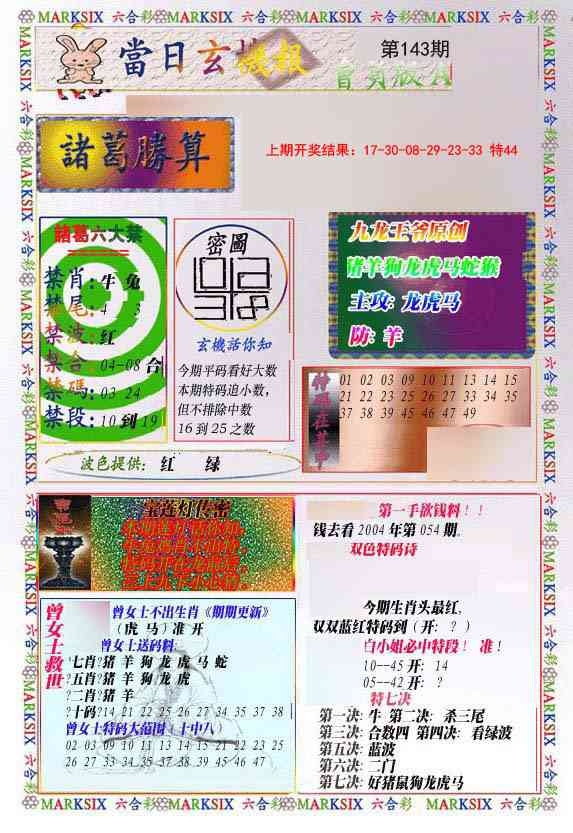 MARKSIX 六合彩 MARKSIX 六合彩 MARKSIX 六合彩 MARKSIX 六合彩
當日玄機報
第143期
諸葛勝算
上期开奖结果：17-30-08-29-23-33 特44
諸葛六大禁
禁肖：牛 兔
禁尾：4 3
禁波：红
禁合：04-08 合
禁碼：03 24
禁段：10 到 19
密圖
玄機話你知
今期平码看好大数
本期特码追小数，
但不排除中数
16 到 25 之数
九龙王爷原创
猪羊狗龙虎马蛇猴
主攻：龙虎马
防：羊
01 02 03 09 10 11 13 14 15
21 22 23 25 26 27 33 34 35
37 38 39 45 46 47 49
波色提供： 红 绿
宝莲灯传密
曾女士救世
曾女士不出生肖《期期更新》
（虎 马）准 开
曾女士送码料：
七肖?猪 羊 狗 龙 虎 马 蛇
?五肖?猪 羊 狗 龙 虎
?二肖?猪 羊
?十码?14 21 22 25 26 27 34 35 37 38
曾女士特码大范围（十中八）
02 03 09 10 11 13 14 15 21 22 23 25
26 27 33 34 35 37 38 39 45 46 47
第一手欲钱料！！
钱去看 2004 年第 054 期.
双色特码诗
今期生肖头最红，
双双蓝红特码到（开：？）
白小姐必中特段！ 准！
10--45 开： 14
05--42 开： ？
特七决
第一决: 牛 第二决: 杀三尾
第三决: 合数四 第四决: 看绿波
第五决: 蓝波
第六决: 二门
第七决: 好猪鼠狗龙虎马
MARKSIX 六合彩 MARKSIX 六合彩 MARKSIX 六合彩 MARKSIX 六合彩